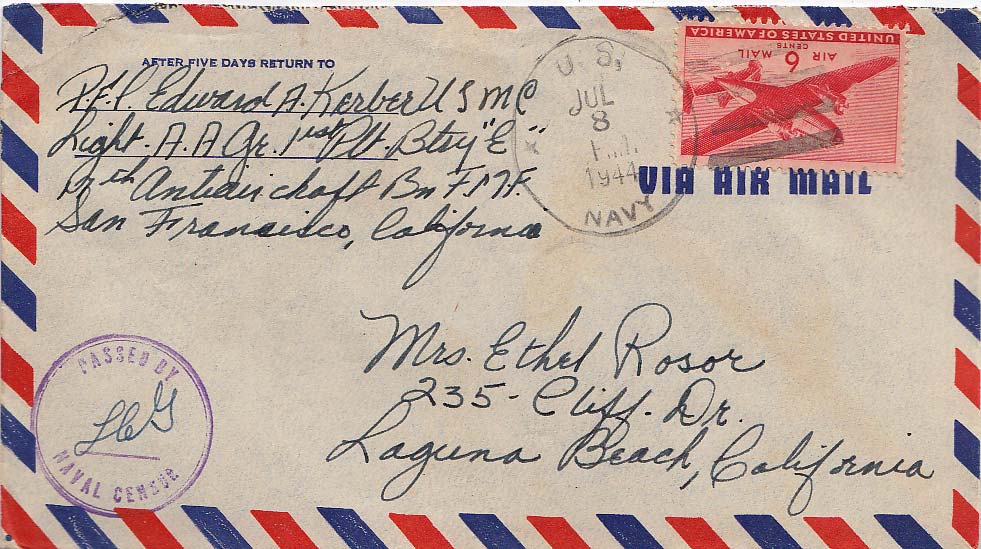 AFTER FIVE DAYS RETURN TO
P.F.C. Edward A. Kerber U S M C
Light. A. A Gr. 1st Plt. Btry "E"
Antiaircraft Bn F.M.F.
San Francisco, California
U. S. NAVY
JUL
8
1944
UNITED STATES OF AMERICA
AIR MAIL
6 CENTS
VIA AIR MAIL
Mrs. Ethel Rosor
235- Cliff. Dr.
Laguna Beach, California
PASSED BY
NAVAL CENSOR